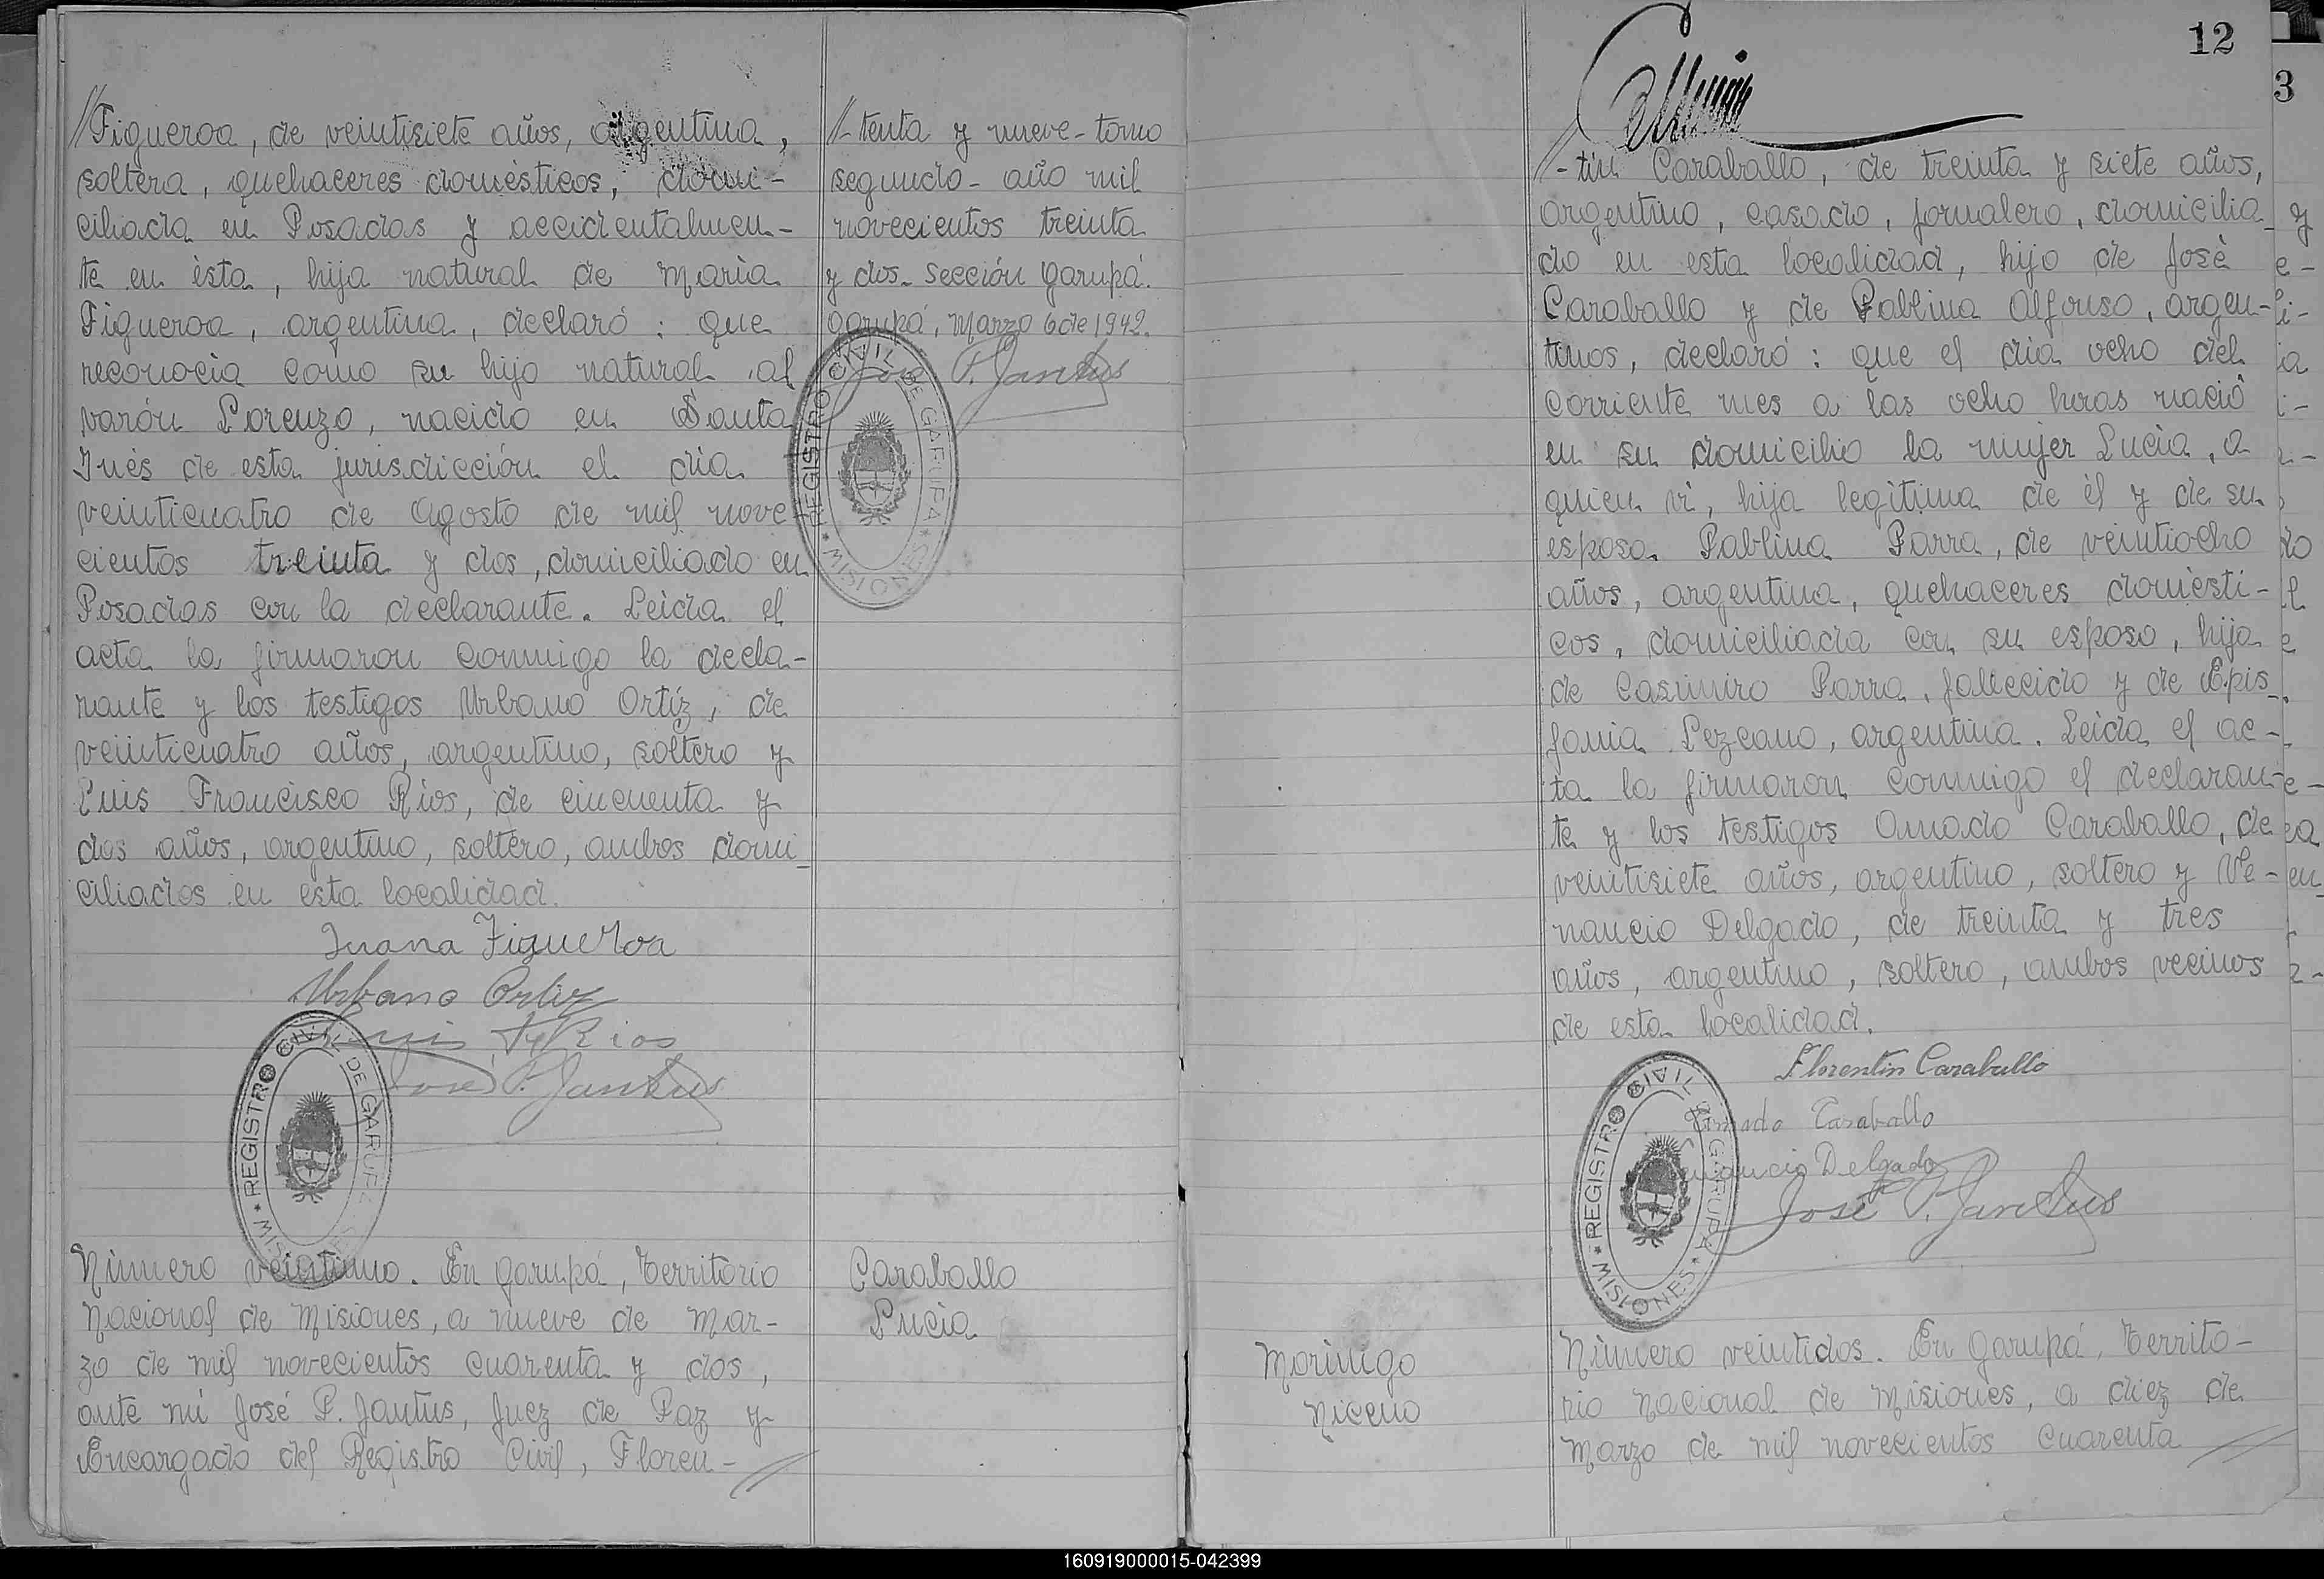 //Figueroa, de veintisiete años, argentina,
soltera, quehaceres domésticos, domi-
ciliada en Posadas y accidentalmen-
te en ésta, hija natural de María
Figueroa, argentina, declaró: que
reconocía como su hijo natural al
varón Lorenzo, nacido en Santa
Inés de esta jurisdicción el día
veinticuatro de Agosto de mil nove
cientos treinta y dos, domiciliado en
Posadas con la declarante. Leída el
acta la firmaron conmigo la decla-
rante y los testigos Urbano Ortíz, de
veinticuatro años, argentino, soltero y
Luis Francisco Ríos, de cincuenta y
dos años, argentino, soltero, ambos domi_
ciliados en esta localidad.
Juana Figueroa
Urbano Ortiz
Luis F. Rios
José P. Jantus
REGISTRO CIVIL DE GARUPA
Número veintiuno. En Garupá, Territorio
Nacional de Misiones, a nueve de Mar-
zo de mil novecientos cuarenta y dos,
ante mí José P. Jantus, Juez de Paz y
Encargado del Registro Civil, Floren-//
//-tenta y nueve-tomo
segundo- año mil
novecientos treinta
y dos- sección Garupá.
Garupá, Marzo 6 de 1942.
José P. Jantus
REGISTRO CIVIL DE GARUPA * MISIONES *
Caraballo
Lucía
12
//-tín Caraballo, de treinta y siete años,
argentino, casado, jornalero, domicilia_
do en esta localidad, hijo de José
Caraballo y de Pablina Alfonso, argen-
tinos, declaró: que el día ocho del
corriente mes a las ocho horas nació
en su domicilio la mujer Lucía, a
quien ví, hija legítima de él y de su
esposa Pablina Parra, de veintiocho
años, argentina, quehaceres domésti-
cos, domiciliada con su esposo, hija
de Casimiro Parra, fallecido y de Epis_
fania Lezcano, argentina. Leída el ac-
ta la firmaron conmigo el declaran-
te y los testigos Amado Caraballo, de
veintisiete años, argentino, soltero y Ve-
nancio Delgado, de treinta y tres
años, argentino, soltero, ambos vecinos
de esta localidad.
Florentin Caraballo
Amado Caraballo
Venancio Delgado
José P. Jantus
REGISTRO CIVIL DE GARUPA * MISIONES *
Morinigo
Niceno
Número veintidos. En Garupá, Territo-
rio Nacional de Misiones, a diez de
Marzo de mil novecientos cuarenta//
3
160919000015-042399